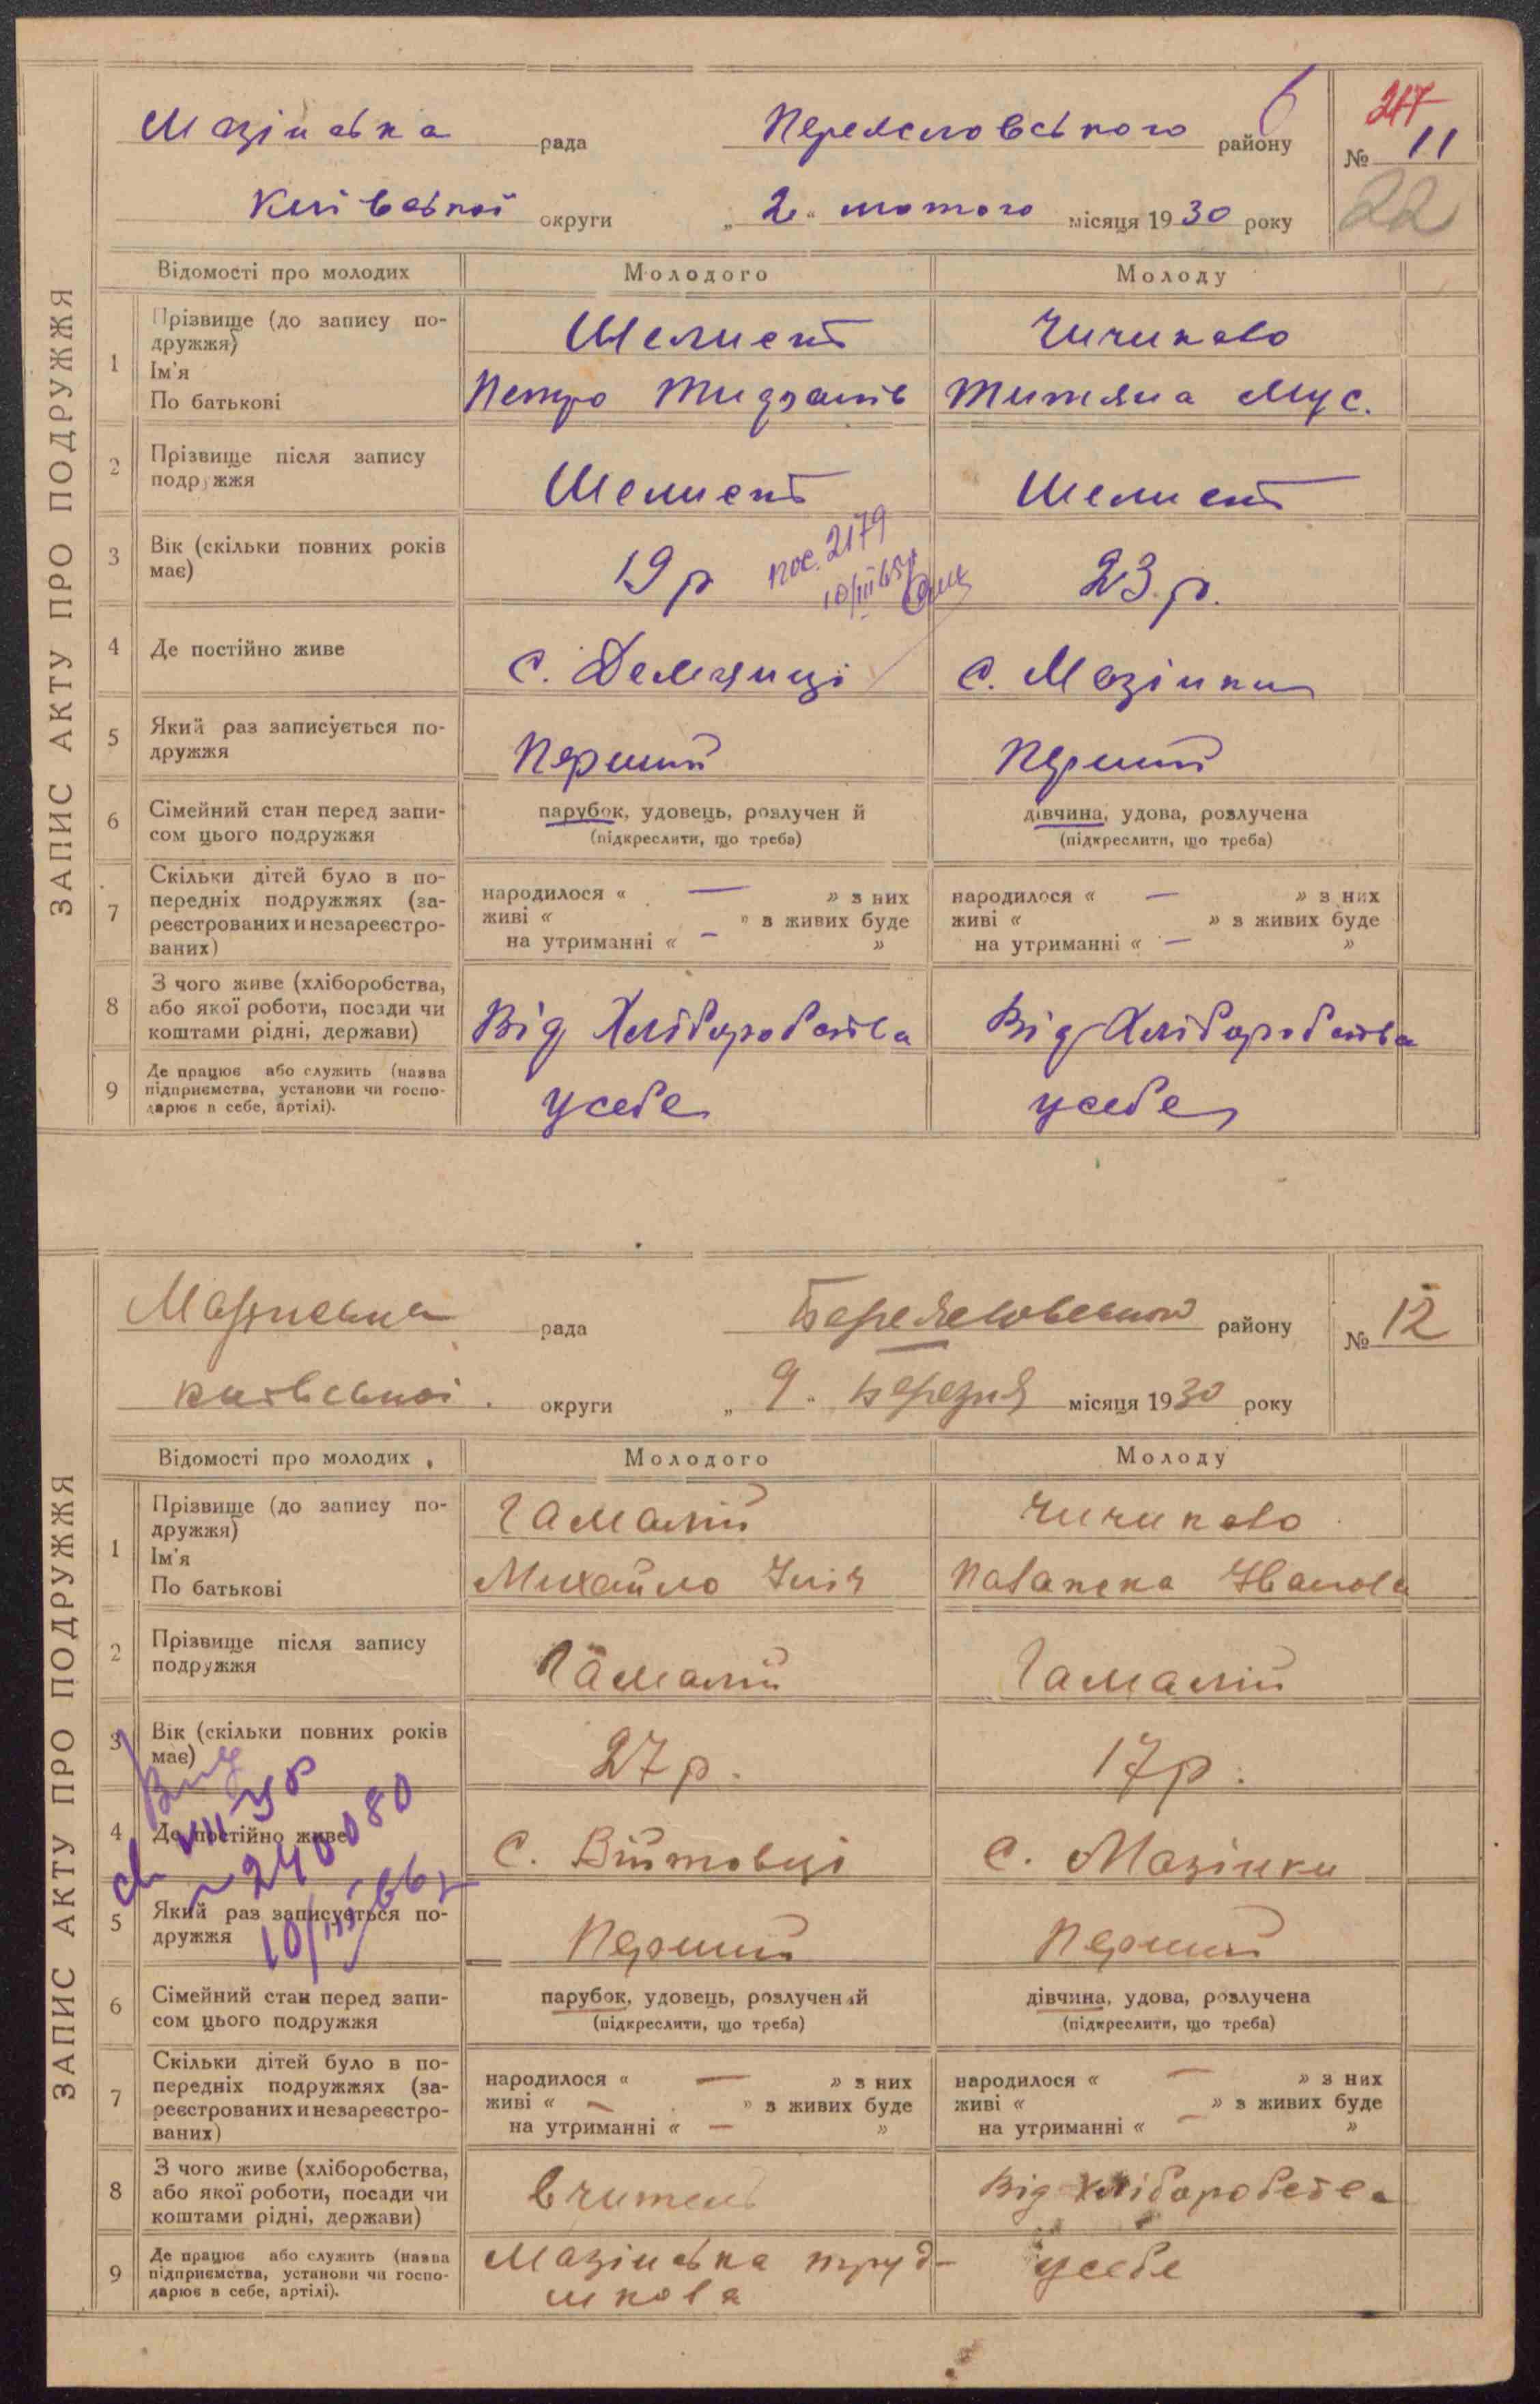 ЗАПИС АКТУ ПРО ПОДРУЖЖЯ
Мазінська рада Переяславського району
217
№ 11
22
Київської округи „2“ лютого місяця 1930 року
Відомості про молодих Молодого Молоду
1 Прізвище (до запису по-
дружжя)
Ім'я
По батькові
Шелист Чичикало
Петро Тидзанів Титяна Мус.
2 Прізвище після запису
подружжя
Шелист Шелист
3 Вік (скільки повних років
має)
19 р 23 р.
пос. 2179
10/III 65
4 Де постійно живе с. Демянці с. Мазінки
5 Який раз записується по-
дружжя
Перший Перший
6 Сімейний стан перед запи-
сом цього подружжя
парубок, удовець, розлучен й дівчина, удова, розлучена
(підкреслити, що треба) (підкреслити, що треба)
7 Скільки дітей було в по-
передніх подружжях (за-
реєстрованих и незареєстро-
ваних)
народилося « — » з них народилося « — » з них
живі « » в живих буде живі « » в живих буде
на утриманні « — » на утриманні « — »
8 З чого живе (хліборобства,
або якої роботи, посади чи
коштами рідні, держави)
Від Хліборобства Від Хліборобства
9 Де працює або служить (назва
підприємства, установи чи госпо-
дарює в себе, артілі).
усебе усебе
ЗАПИС АКТУ ПРО ПОДРУЖЖЯ
Мазінська рада Береяславської району
№ 12
київської округи „9“ Березня місяця 1930 року
Відомості про молодих Молодого Молоду
1 Прізвище (до запису по-
дружжя)
Ім'я
По батькові
Гамалій Чичикало
Михайло Ілія Палажка Іванова
2 Прізвище після запису
подружжя
Гамалій Гамалій
3 Вік (скільки повних років
має)
27 р. 17 р.
4 Де постійно живе с. Війтовці с. Мазінки
240080
10/III 66
5 Який раз записується по-
дружжя
Перший Перший
6 Сімейний стан перед запи-
сом цього подружжя
парубок, удовець, розлучений дівчина, удова, розлучена
(підкреслити, що треба) (підкреслити, що треба)
7 Скільки дітей було в по-
передніх подружжях (за-
реєстрованих и незареєстро-
ваних)
народилося « — » з них народилося « — » з них
живі « — » в живих буде живі « » в живих буде
на утриманні « — » на утриманні « — »
8 З чого живе (хліборобства,
або якої роботи, посади чи
коштами рідні, держави)
вчитель Від хліборобства
9 Де працює або служить (назва
підприємства, установи чи госпо-
дарює в себе, артілі).
Мазінська труд- усебе
школа